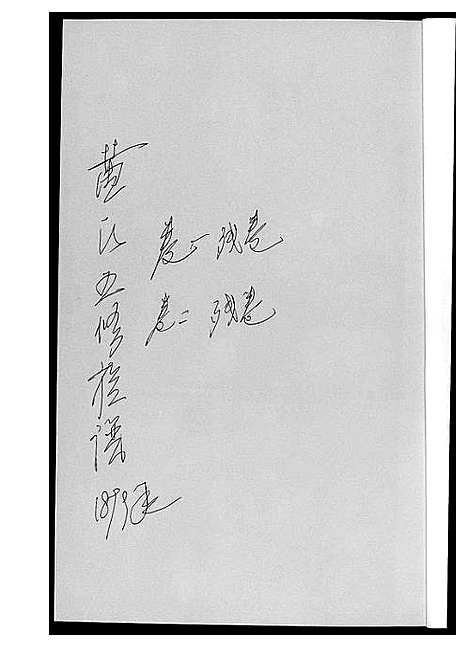 黄氏五修族谱
1899年
卷一 残卷
卷二 残卷